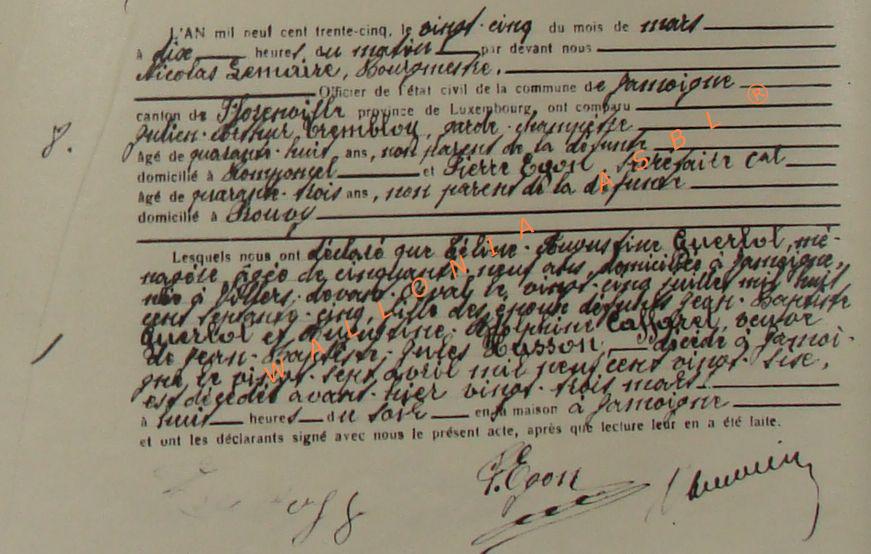 L'AN mil neuf cent trente-cinq, le vingt-cinq du mois de mars
à dix heures du matin par devant nous
Nicolas Lemaire, Bourgmestre.
Officier de l'état civil de la commune de Jamoigne
canton de Florenville province de Luxembourg, ont comparu
Julien-Arthur Tremblou, garde-champêtre
âgé de quarante-huit ans, non parent de la défunte
domicilié à Romponcel et Pierre Egon, Secrétaire cal
âgé de quarante-trois ans, non parent de la défunte
domicilié à Prouvy
8.
Lesquels nous ont déclaré que Céline-Augustine Guerlot, mé-
nagère, âgée de cinquante-neuf ans, domiciliée à Jamoigne,
née à Villers-devant-Orval le vingt-cinq juillet mil huit
cent septante-cinq, fille des époux défunts Jean-Baptiste
Guerlot et Augustine-Delphine Laffarel, veuve
de Jean-Baptiste-Jules Husson décédé à Jamoi-
gne le vingt-sept avril mil neuf cent vingt-sise,
est décédée avant-hier vingt-trois mars
à huit heures du soir en sa maison à Jamoigne
et ont les déclarants signé avec nous le présent acte, après que lecture leur en a été faite.
P. Egon
WALLONIA ASBL ®